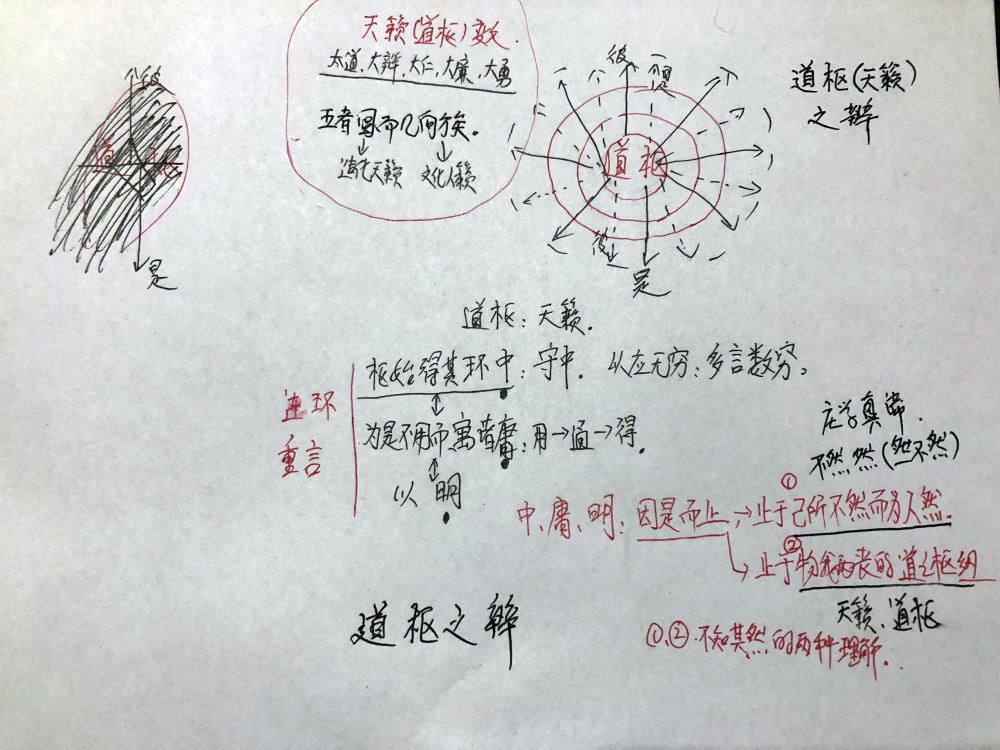 天籁(道枢)家文
大道,大辩,大仁,大廉,大勇
五者圆而几向方矣。
造化天籁 文化人籁
彼
道枢
是
彼
是
道枢
彼
是
道枢(天籁)
之辨
道枢:天籁.
枢始得其环中:守中. 以应无穷:多言数穷。
为是不用而寓诸庸:用→通→得.
以明
连环
重言
庄学真谛.
不然然(然不然)
中、庸、明:因是而止,→止于①己所不然而为人然.
→止于②物我两丧的道之枢纽
天籁、道枢
①,②.不知其然的两种理解.
道枢之辨